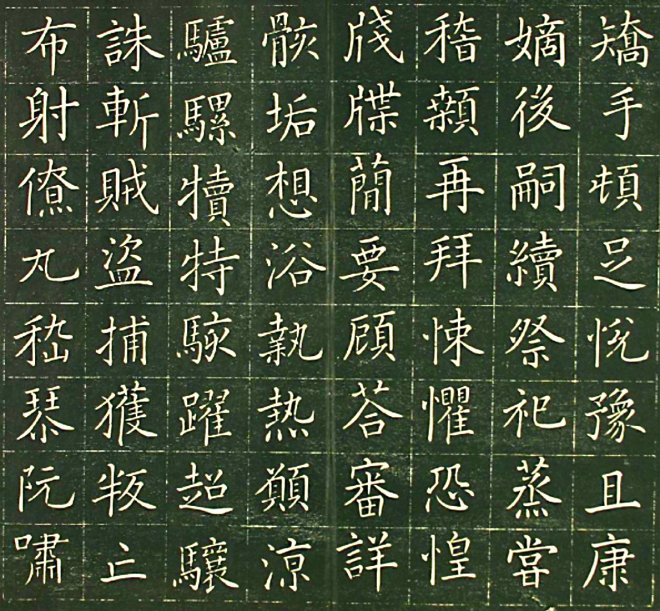 矯手頓足悅豫且康
嫡後嗣續祭祀蒸甞
稽顙再拜悚懼恐惶
牋牒簡要顧荅審詳
骸垢想浴執熱願涼
驢騾犢特駭躍超驤
誅斬賊盜捕獲叛亡
布射僚丸嵇琴阮嘯